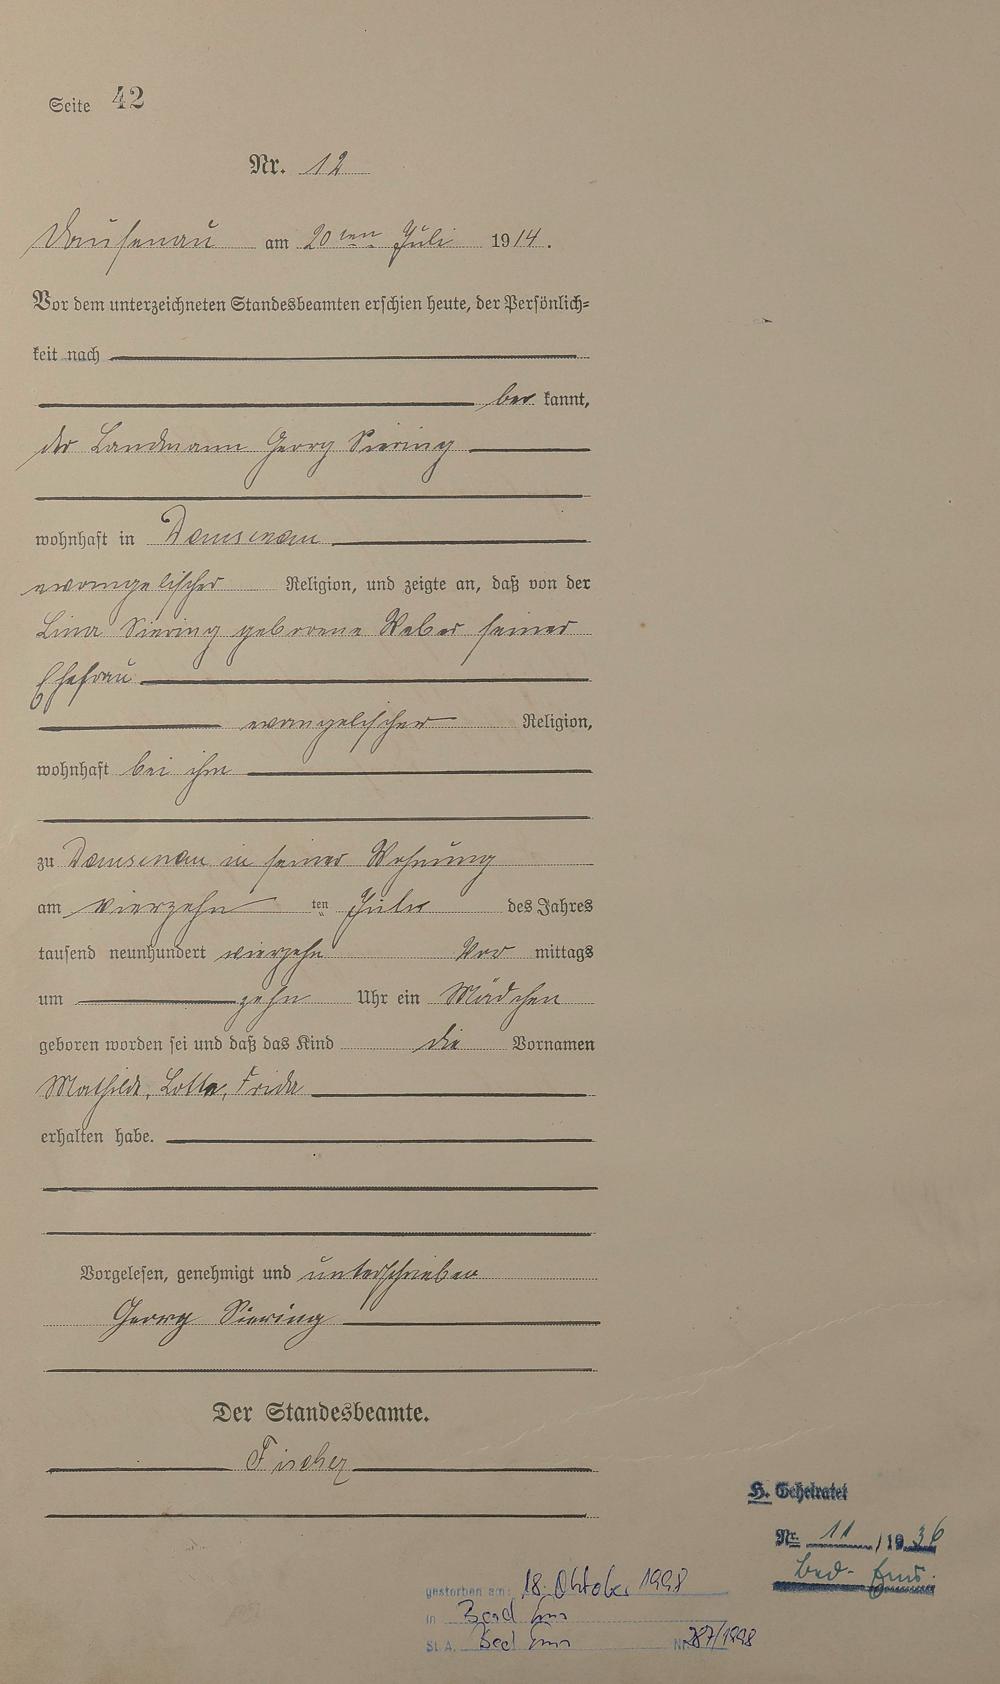 Seite 42
Nr. 12
Dausenau am 20ten Juli 1914.
Vor dem unterzeichneten Standesbeamten erschien heute, der Persönlich=
keit nach
be kannt,
der Landmann Georg Siering
wohnhaft in Dausenau
evangelischer Religion, und zeigte an, daß von der
Lina Siering geborene Weber seiner
Ehefrau
evangelischer Religion,
wohnhaft bei ihm
zu Dausenau in seiner Wohnung
am vierzehn ten Juli des Jahres
tausend neunhundert vierzehn Vor mittags
um zehn Uhr ein Mädchen
geboren worden sei und daß das Kind die Vornamen
Mathilde, Lotte, Frida
erhalten habe.
Vorgelesen, genehmigt und unterschrieben
Georg Siering
Der Standesbeamte.
Fischer
H. Geheiratet
Nr. 11 /1936
Bad-Ems.
gestorben am: 18. Oktober 1998
in Bad Ems
St. A. Bad Ems Nr. 287/1998